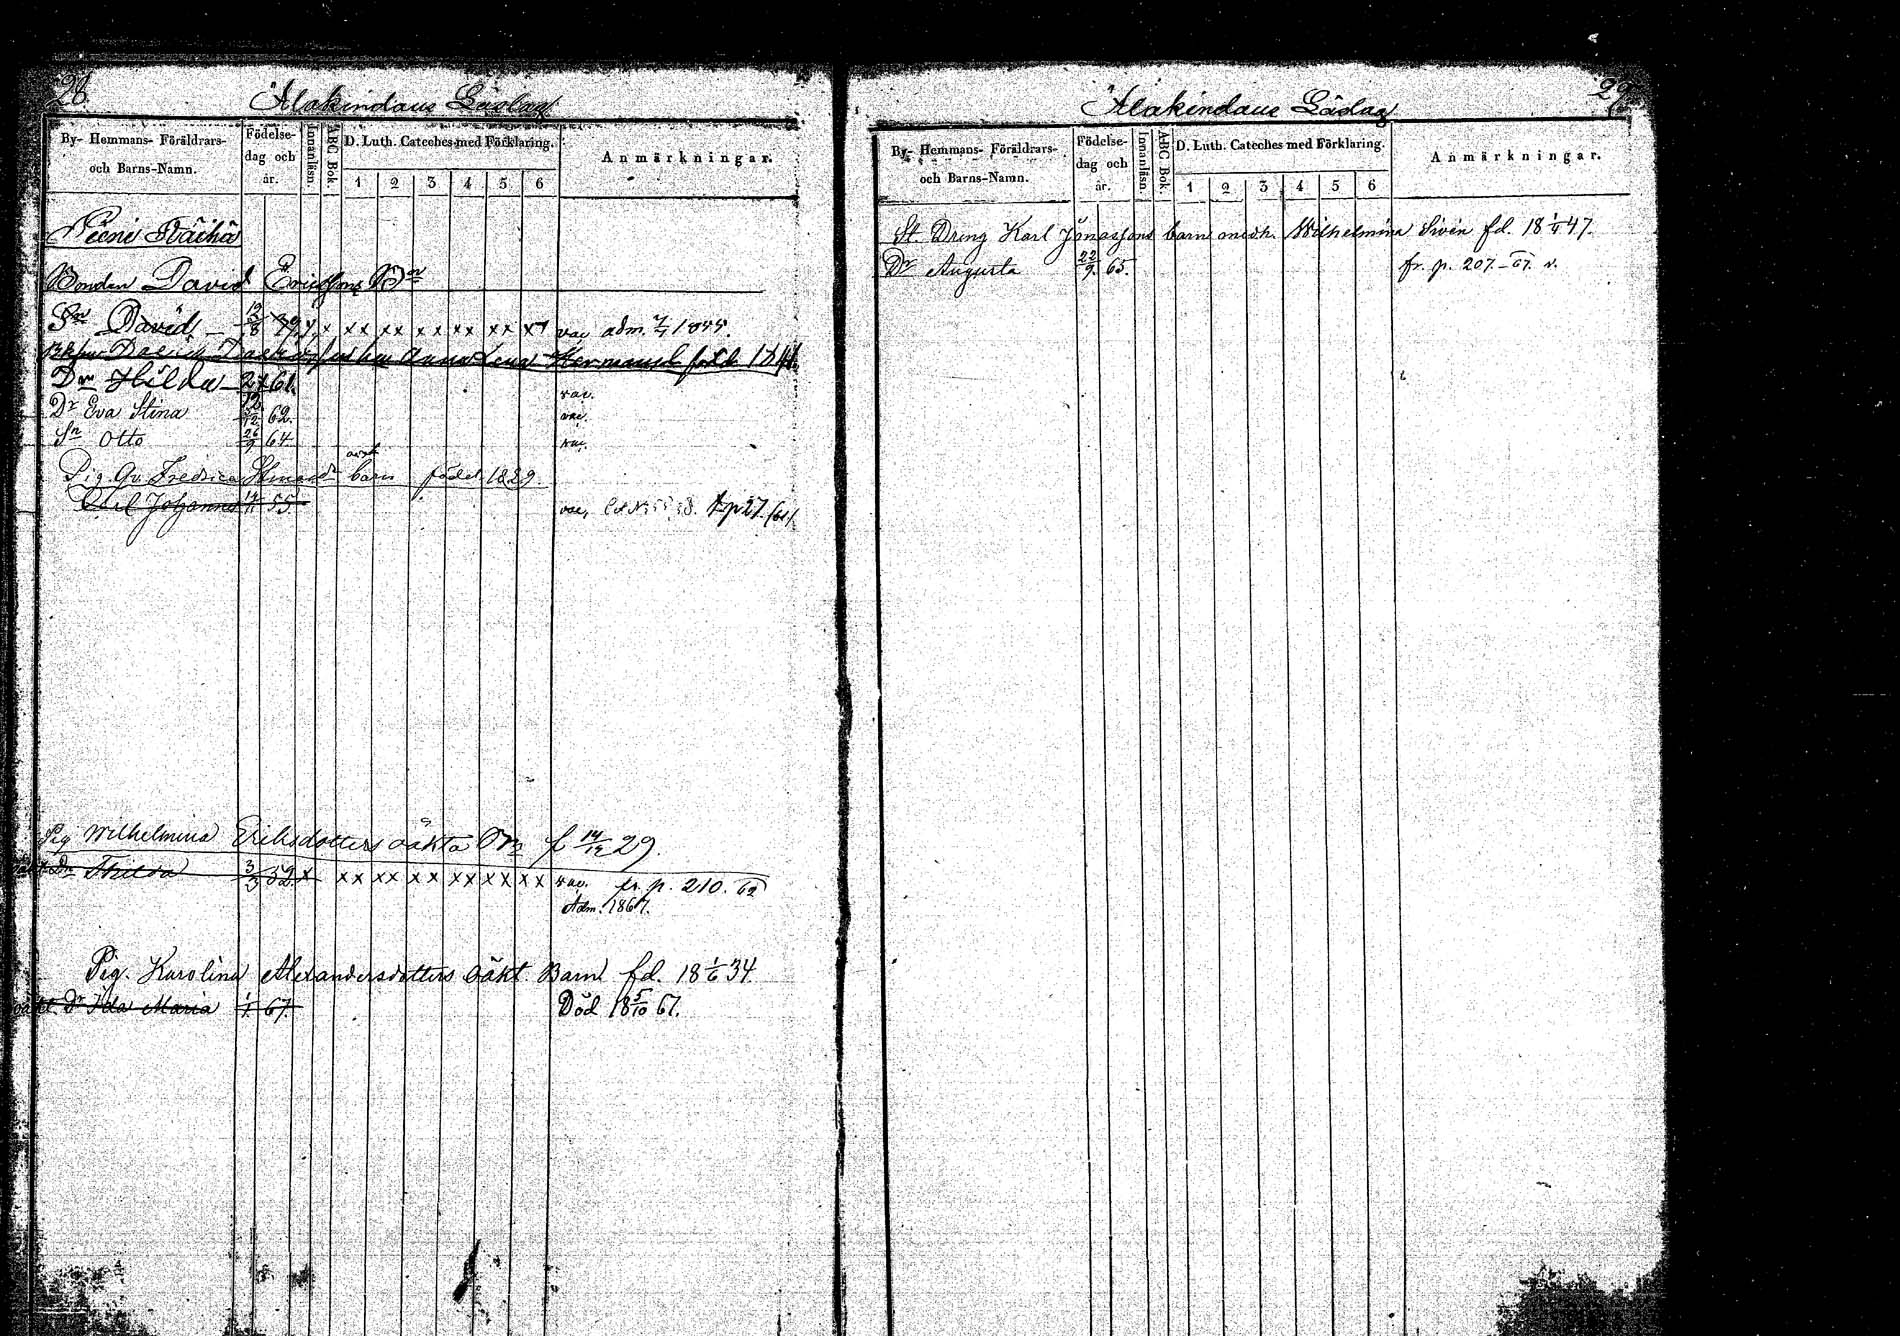 28
Alakindaus Läslag
By- Hemmans- Föräldrars- och Barns-Namn.
Födelse- dag och år.
Innanläsn.
ABC Bok.
D. Luth. Cateches med Förklaring.
1 2 3 4 5 6
Anmärkningar.
Räihä
Bonden David Ericssons Bn
Sn David 12/8 x x xx xx xx xx xx vac adm. 18
David Davidss Anna Lena Hermansd
Dr Hilda 61. vac.
Dr Eva Stina /12 62. vac.
Sn Otto 26/9 64 vac.
Pig. Gv. Fredrica barn född 1829
Carl Johannes 55. vac, p 27.
Pig Wilhelmina Eriksdotters oäkta Brn f 14/12 29.
Dr 3/3 52. x xx xx xx xx xx xx vac. fr. p. 210. 62
Adm. 1867.
Pig. Karolina Alexandersdotters oäkt. Barn fd. 18 1/6 34.
oäkt. Dr Ida Maria 1/1 67. Död 18 5/10 67.
29
Alakindaus Läslag
By- Hemmans- Föräldrars- och Barns-Namn.
Födelse- dag och år.
Innanläsn.
ABC Bok.
D. Luth. Cateches med Förklaring.
1 2 3 4 5 6
Anmärkningar.
St. Dreng Karl Jonassons barn med h. Wilhelmina Sivén fd. 18 47.
Dr Augusta 22/9. 65. fr. p. 207.-67. v.